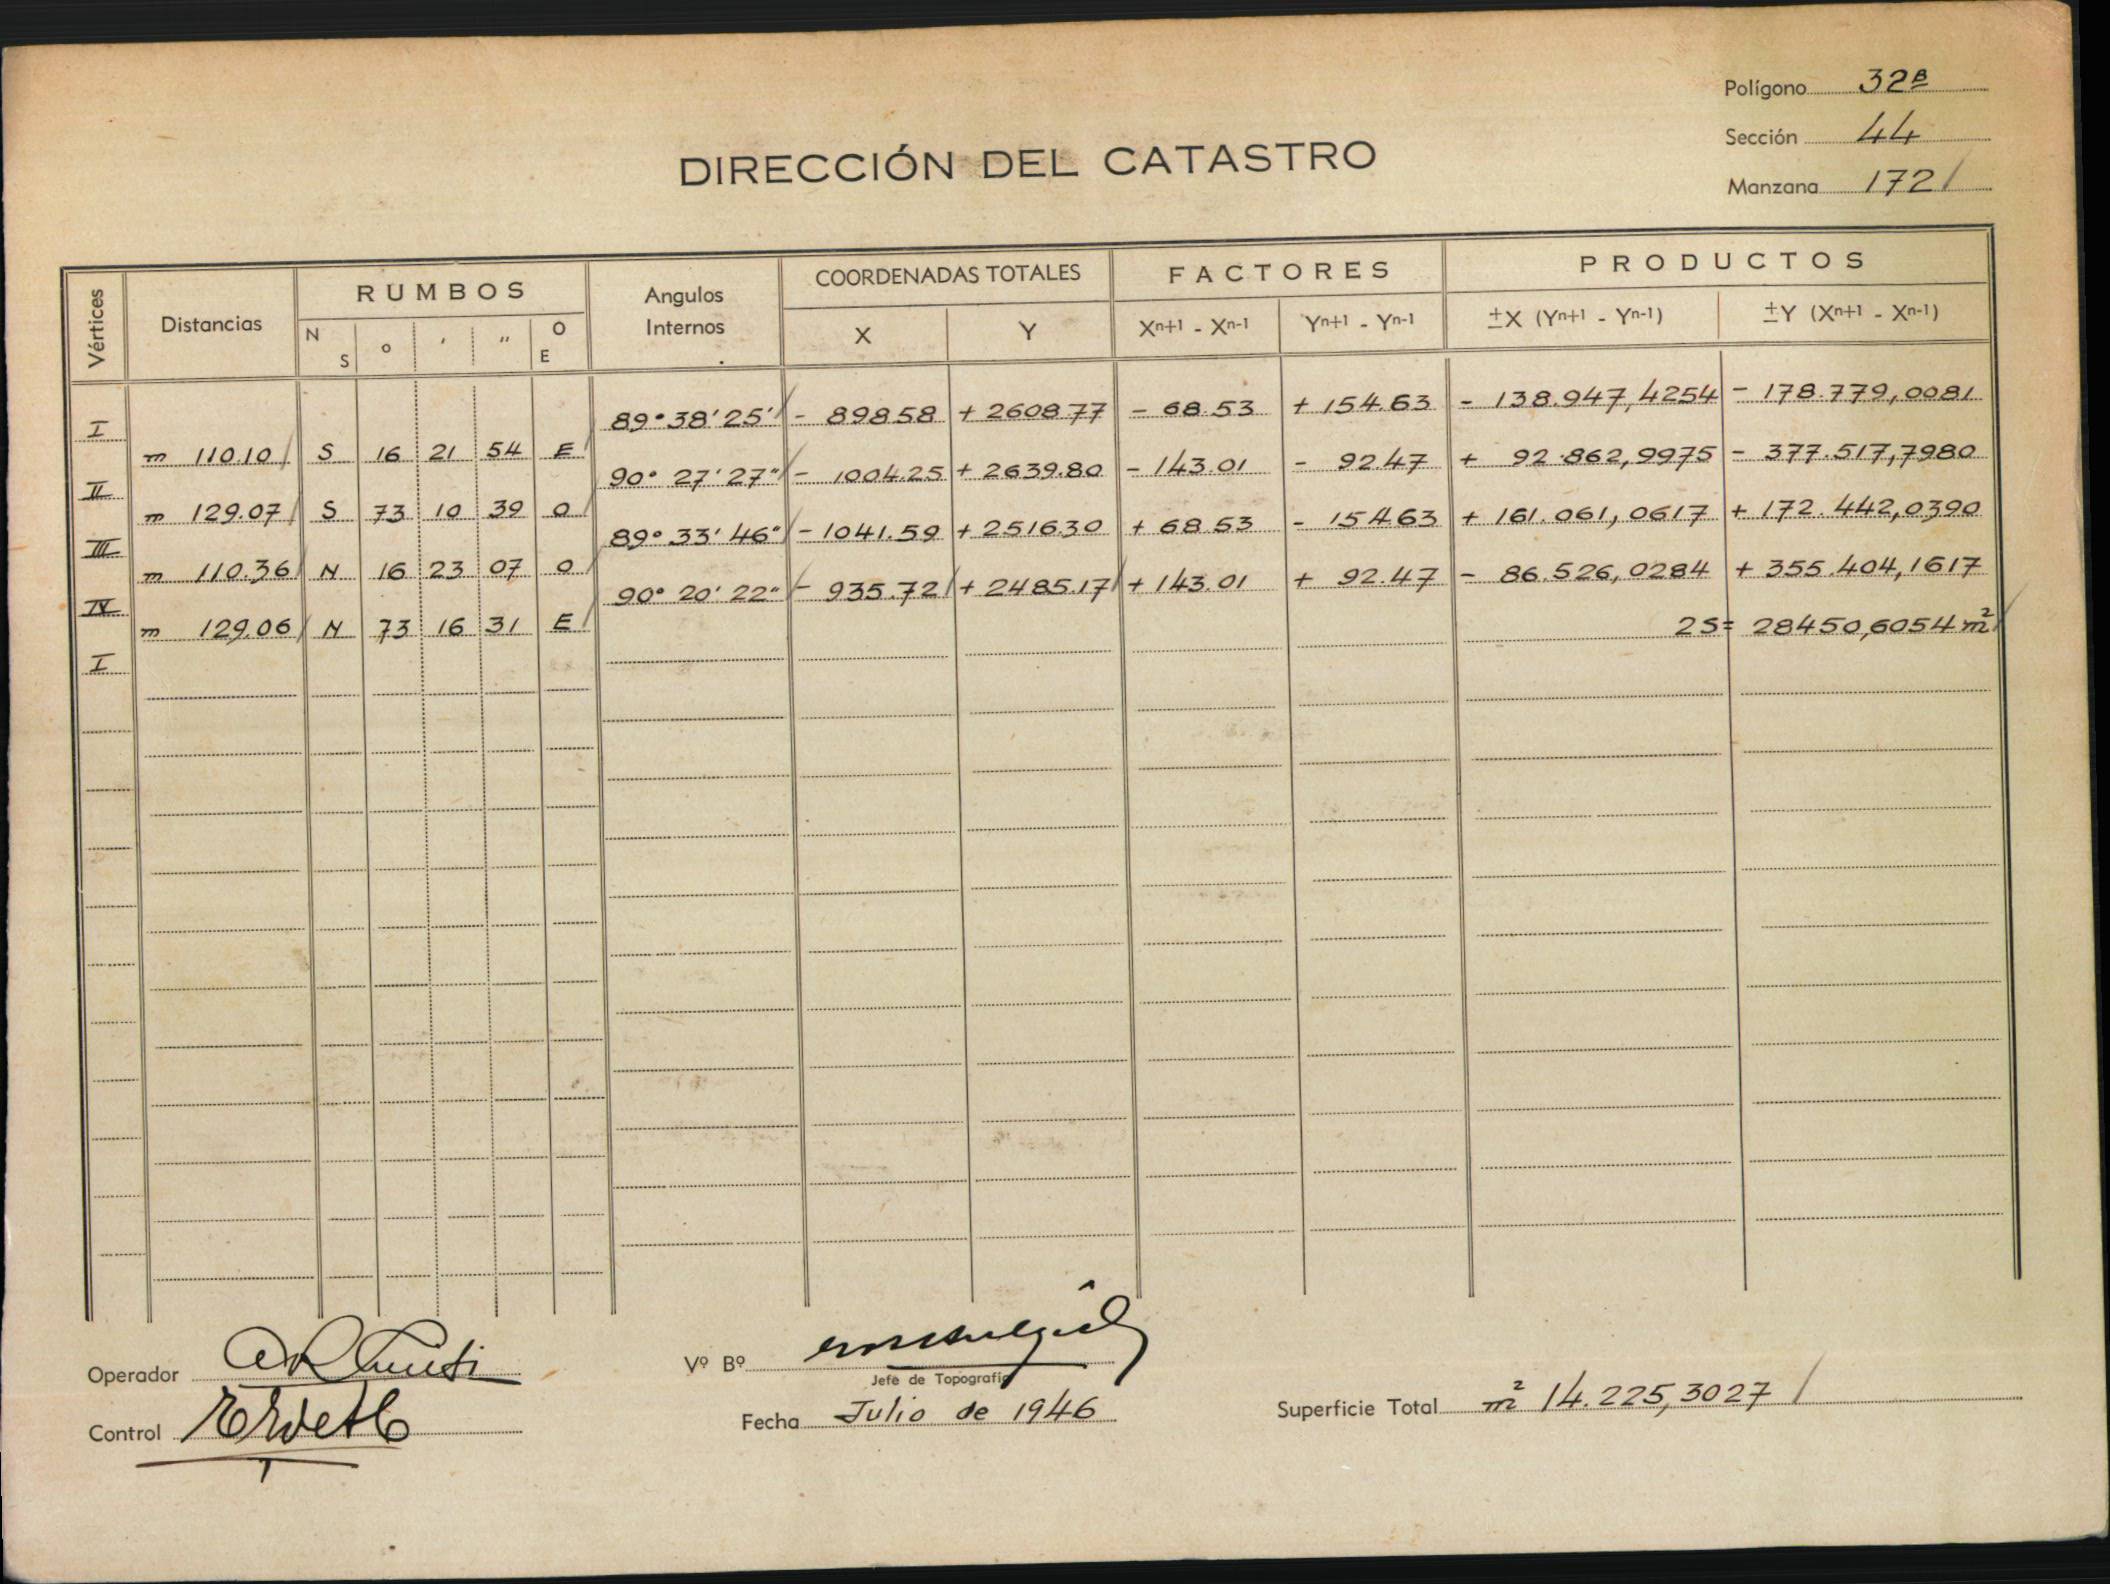 Polígono 32ᴮ
Sección 44
Manzana 172
DIRECCIÓN DEL CATASTRO
Vértices Distancias RUMBOS Angulos Internos COORDENADAS TOTALES FACTORES PRODUCTOS
N S º ′ ″ O E X Y Xⁿ⁺¹ - Xⁿ⁻¹ Yⁿ⁺¹ - Yⁿ⁻¹ ±X (Yⁿ⁺¹ - Yⁿ⁻¹) ±Y (Xⁿ⁺¹ - Xⁿ⁻¹)
I 89° 38' 25' - 898.58 + 2608.77 - 68.53 + 154.63 - 138.947,4254 - 178.779,0081
m 110.10 S 16 21 54 E
II 90° 27' 27" - 1004.25 + 2639.80 - 143.01 - 92.47 + 92.862,9975 - 377.517,7980
m 129.07 S 73 10 39 O
III 89° 33' 46" - 1041.59 + 2516.30 + 68.53 - 154.63 + 161.061,0617 + 172.442,0390
m 110.36 N 16 23 07 O
IV 90° 20' 22" - 935.72 + 2485.17 + 143.01 + 92.47 - 86.526,0284 + 355.404,1617
m 129.06 N 73 16 31 E
2S = 28450,6054 m²
I
Operador
Vº Bº
Jefe de Topografía
Control
Fecha Julio de 1946
Superficie Total m² 14.225,3027